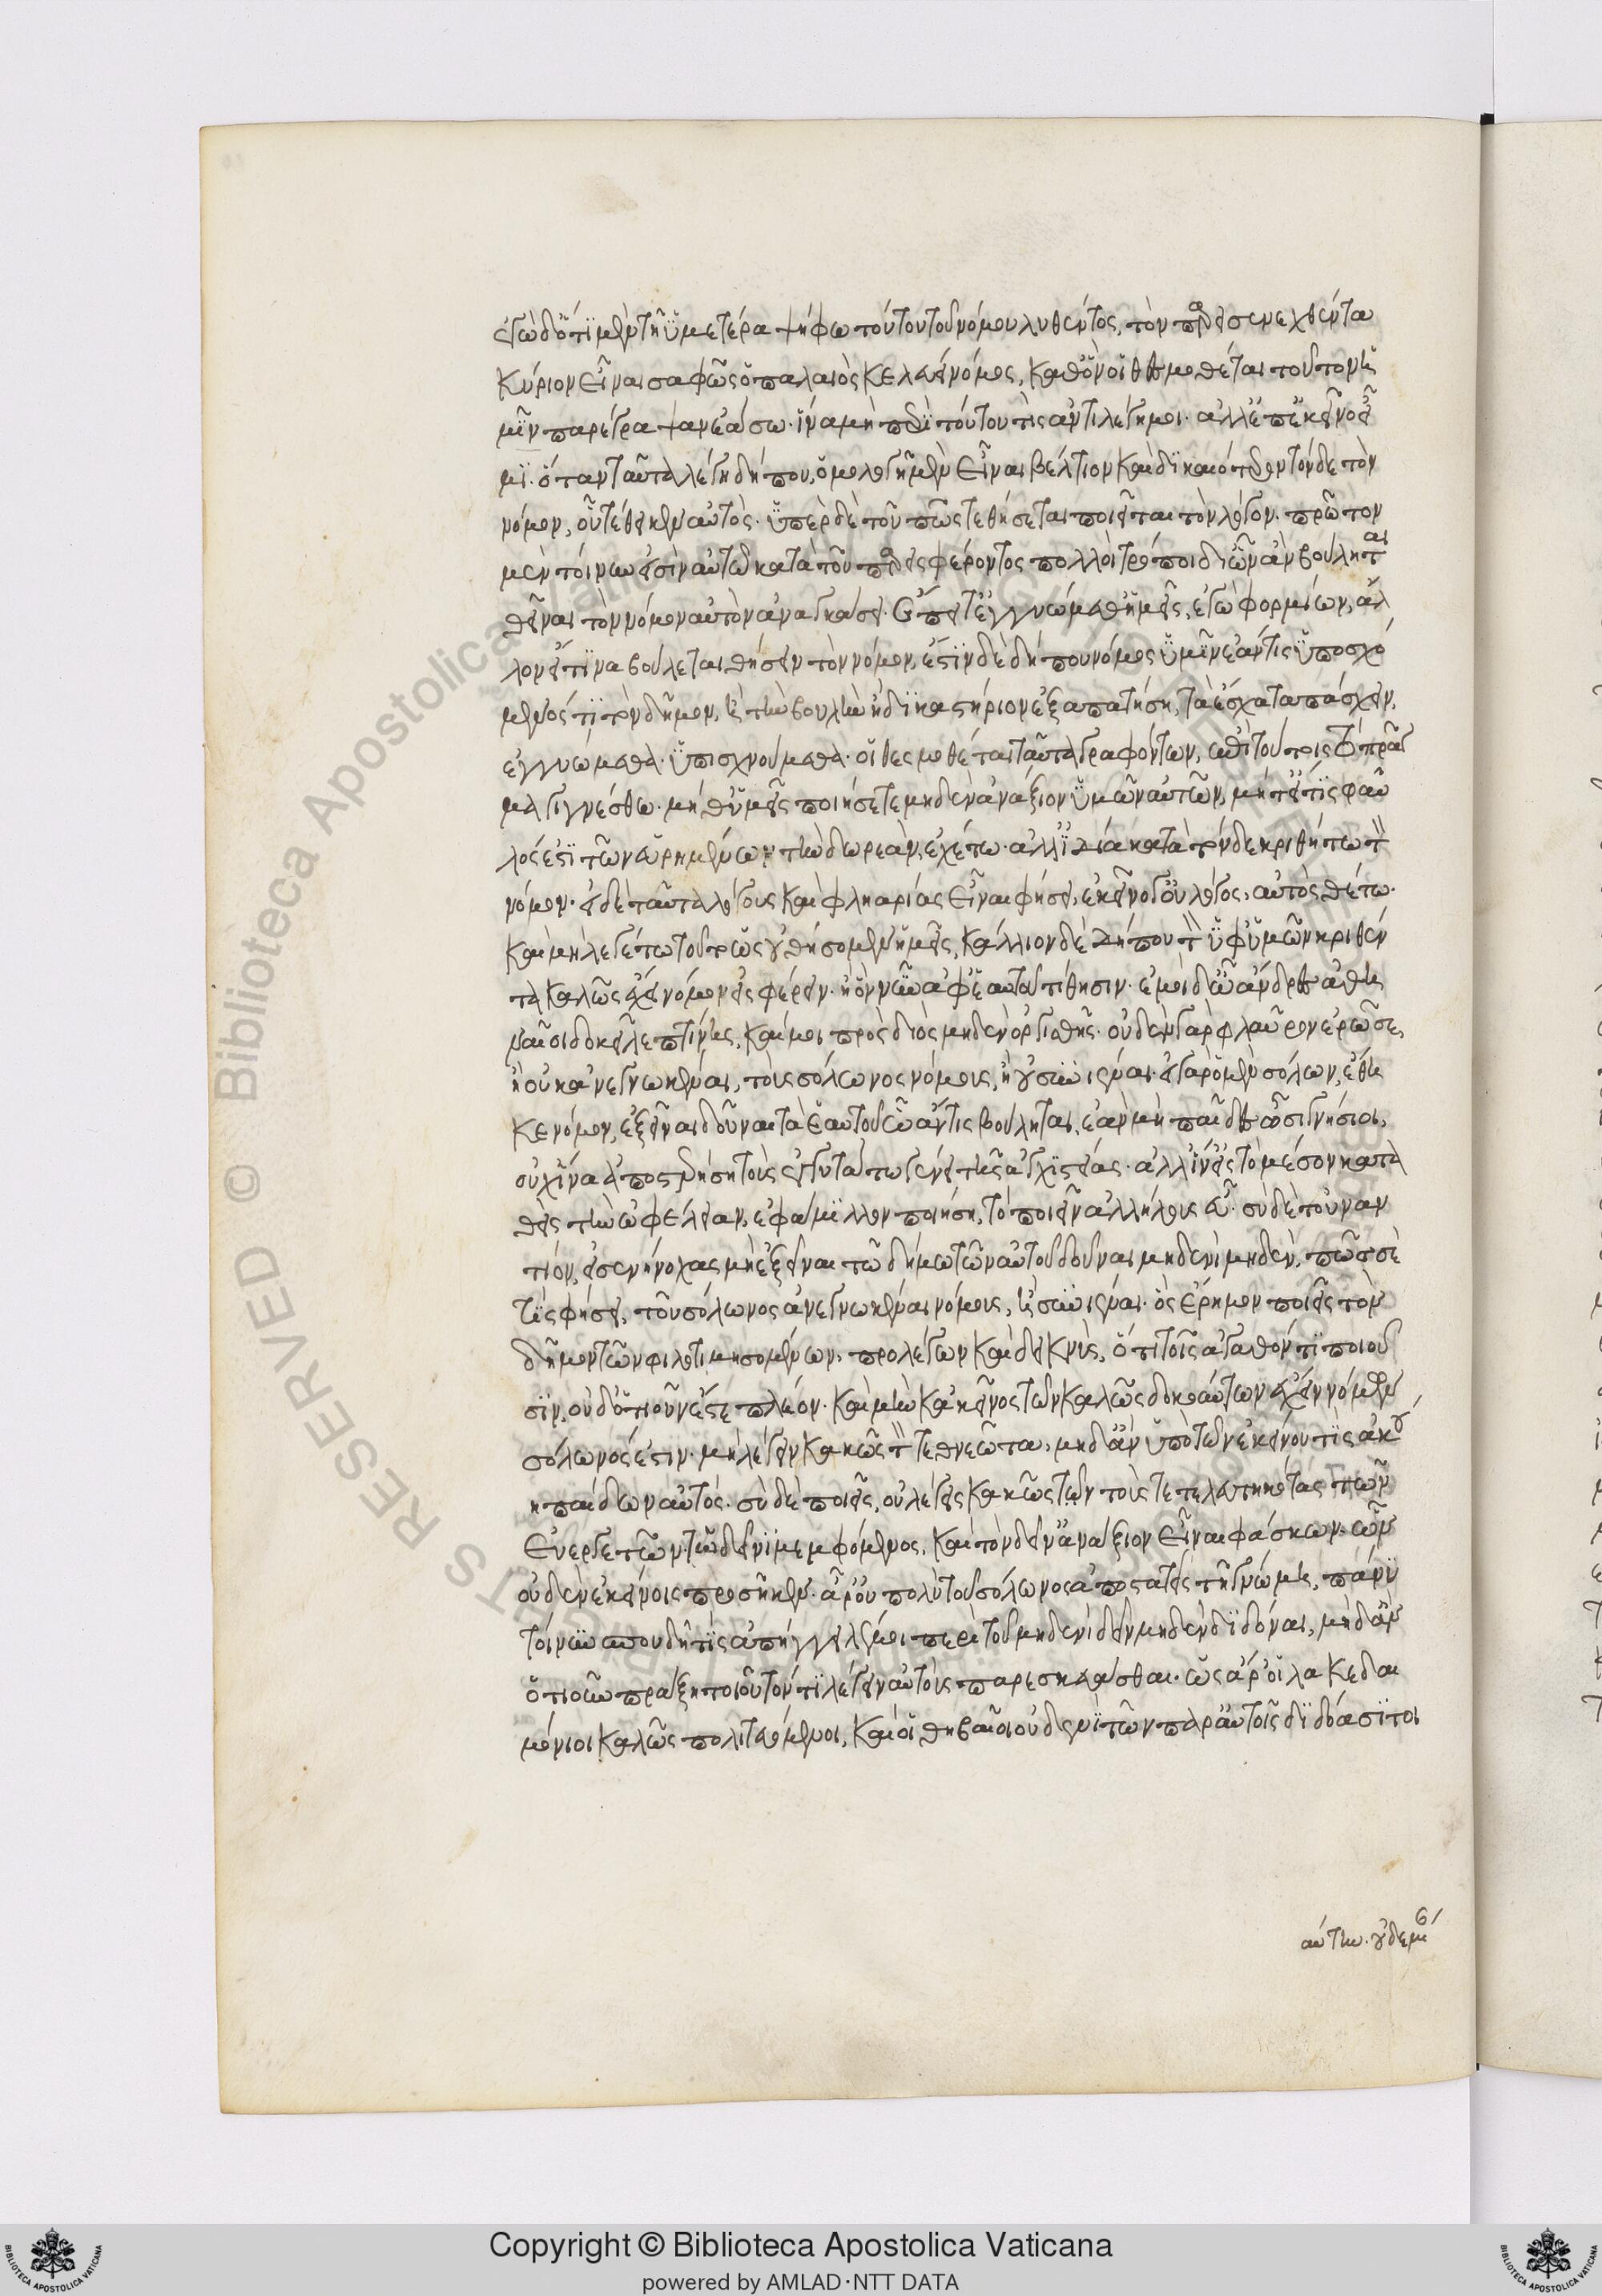 ἐγὼ δ' ὅτι μὲν τῇ ὑμετέρα ψήφω τούτου τοῦ νόμου λυθέντος, τὸν παρεισενεχθέντα
κύριον εἶναι σαφῶς ὁ παλαιὸς κελεύει νόμος, καθ' ὃν οἱ θεσμοθέται τοῦτον ὑ
μῖν παρέγραψαν ἐάσω· ἵνα μὴ περὶ τούτου τὶς ἀντιλέγη μοι· ἀλλ' ἐπ' ἐκεῖνο εἶ
μι. ὅταν ταῦτα λέγη δήπου, ὁμολογεῖ μὲν εἶναι βελτίον καὶ δικαιότερον τόνδε τὸν
νόμον, οὗ τέθεικεν αὐτός· ὑπὲρ δὲ τοῦ πῶς τεθήσεται ποιεῖται τὸν λόγον. πρῶτον
μὲν τοίνυν εἰσὶν αὐτῶ κατὰ τοῦ παρεισφέροντος πολλοὶ τρόποι δι' ὧν ἂν βούληται
θεῖναι τὸν νόμον αὐτὸν ἀναγκάσει. ἔπειτ' ἐγγυώμεθ' ἡμεῖς, ἐγὼ φορμίων, ἄλ
λον εἴ τινα βούλεται θήσειν τὸν νόμον, ἔστιν δὲ δήπου νόμος ὑμῖν ἐάν τις ὑποσχό
μενός τι τὸν δῆμον, ἢ τὴν βουλὴν ἢ δικαστήριον ἐξαπατήση, τὰ ἔσχατα πάσχειν,
ἐγγυώμεθα. ὑπισχνούμεθα. οἱ θεσμοθέται ταῦτα γραφόντων, ἐπὶ τούτοις τὸ πρᾶγ
μα γιγνέσθω. μήθ' ὑμεῖς ποιήσετε μηδὲν ἀνάξιον ὑμῶν αὐτῶν, μήτ' εἴ τις φαῦ
λός ἐστι τῶν εὑρημένων τὴν δωρεὰν, ἐχέτω· ἀλλ' ἰδία κατὰ τόνδε κριθήτω τὸν
νόμον. εἰ δὲ ταῦτα λόγους καὶ φληαρίας εἶναι φήσει, ἐκεῖνό γ' οὐ λόγος, αὐτὸς θέτω.
καὶ μὴ λεγέτω τοῦθ' ὡς οὐ θήσομεν ἡμεῖς, κάλλιον δὲ δήπου τὸν ὑφ' ὑμῶν κριθέν
τα καλῶς ἔχειν νόμον εἰσφέρειν. ἢ ὃν νῦν ἀφ' ἑαυτοῦ τίθησιν. ἐμοὶ δ' ὦ ἄνδρες ἀθη
ναῖοι δοκεῖ λεπτίνης, καί μοι πρὸς διὸς μηδὲν ὀργισθῆς. οὐδὲν γὰρ φλαῦρον ἐρῶ σε,
ἢ οὐκ ἀνεγνωκέναι, τοὺς σόλωνος νόμους, ἢ οὐ συνιέναι. εἰ γὰρ ὁ μὲν σόλων, ἔθη
κε νόμον, ἐξεῖναι δοῦναι τὰ ἑαυτοῦ ᾧ ἄν τις βούληται, ἐὰν μὴ παῖδες ὦσι γνήσιοι,
οὐχ ἵνα ἀποστερήση τοὺς ἐγγυτάτω γένει τῆς ἀγχιστείας. ἀλλ' ἵν' εἰς τὸ μέσον κατα
θεὶς τὴν ὠφέλειαν, ἐφάμιλλον ποιήση, τὸ ποιεῖν ἀλλήλους εὖ. σὺ δὲ τοὐναν
τίον, εἰσενήνοχας μὴ ἐξεῖναι τῷ δήμω τῶν αὐτοῦ δοῦναι μηδενὶ μηδὲν, πῶς σὲ
τὶς φήσει, τοὺς σόλωνος ἀνεγνωκέναι νόμους, ἢ συνιέναι. ὃς ἔρημον ποιεῖς τὸν
δῆμον τῶν φιλοτιμησομένων, προλέγων καὶ δεικνὺς, ὅτι τοῖς ἀγαθόν τι ποιοῦ
σιν, οὐδ' ὁτιοῦν ἔσται πλέον. καὶ μὴν κἀκεῖνος τῶν καλῶς δοκούντων ἔχειν νόμων
σόλωνός ἐστιν. μὴ λέγειν κακῶς τὸν τεθνεῶτα, μηδ' ἂν ὑπὸ τῶν ἐκείνου τὶς ἀκού
η παίδων αὐτός. σὺ δὲ ποιεῖς, οὐ λέγεις κακῶς τῶν τοὺς τετελευτηκότας τῶν
εὐεργετῶν, τῶ δεῖνι μεμφόμενος, καὶ τὸν δεῖν' ἀνάξιον εἶναι φάσκων. ὧν
οὐδὲν ἐκείνοις προσῆκεν. ἆρ' οὐ πολὺ τοῦ σόλωνος ἀποστατεῖς τῆ γνώμη, πάνυ
τοίνυν σπουδῆ τὶς ἀπήγγειλέ μοι περὶ τοῦ μηδενὶ δεῖν μηδὲν διδόναι, μηδ' ἂν
ὁτιοῦν πράξη τοιοῦτόν τι λέγειν αὐτοὺς παρεσκευάσθαι. ὡς ἄρ' οἱ λακεδαι
μόνιοι καλῶς πολιτευόμενοι, καὶ οἱ θηβαῖοι οὐδενὶ τῶν παρ' αὑτοῖς διδόασι τοι
αύτην. οὐδεμι